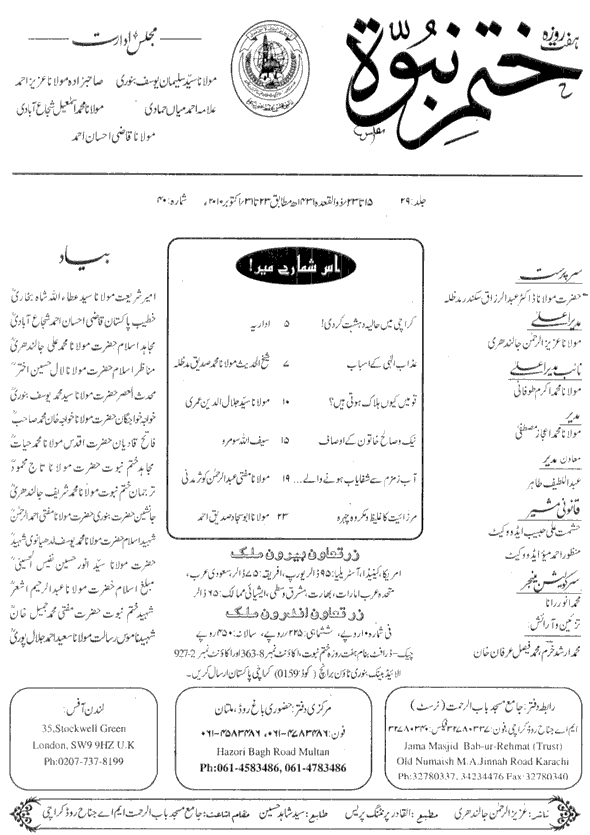 ہفت روزہ
ختم نبوۃ
مجلس ادارت
مولانا سید سلیمان یوسف بنوری صاحبزادہ مولانا عزیز احمد
علامہ احمد میاں حمادی مولانا محمد اسمٰعیل شجاع آبادی
مولانا قاضی احسان احمد
جلد:۲۹ ۱۵ تا ۲۳/ذوالقعدہ ۱۴۳۱ھ مطابق ۲۳ تا ۳۱/اکتوبر ۲۰۱۰ء شمارہ:۴۰
سرپرست
حضرت مولانا ڈاکٹر عبدالرزاق سکندر مدظلہ
مدیر اعلیٰ
مولانا عزیز الرحمٰن جالندھری
نائب مدیر اعلیٰ
مولانا محمد اکرم طوفانی
مدیر
مولانا محمد اعجاز مصطفیٰ
معاون مدیر
عبداللطیف طاہر
قانونی مشیر
حشمت علی حبیب ایڈووکیٹ
منظور احمد میؤ ایڈووکیٹ
سرکولیشن منیجر
محمد انور رانا
تزئین و آرائش:
محمد ارشد خرم، محمد فیصل عرفان خان
اس شمارے میں!
کراچی میں حالیہ دہشت گردی! ۵ اداریہ
عذاب الٰہی کے اسباب ۷ شیخ الحدیث مولانا محمد صدیق مدظلہ
قومیں کیوں ہلاک ہوتی ہیں؟ ۱۰ مولانا سید جلال الدین عمری
نیک و صالح خاتون کے اوصاف ۱۵ سیف اللہ سومرو
آب زمزم سے شفایاب ہونے والے... ۱۹ مولانا مفتی عبدالرحمٰن کوثر مدنی
مرزائیت کا غلیظ و مکروہ چہرہ ۲۳ مولانا ابو سجاد صدیق احمد
زرتعاون بیرون ملک
امریکا، کینیڈا، آسٹریلیا: ۹۵ ڈالر یورپ، افریقہ: ۷۵ ڈالر، سعودی عرب،
متحدہ عرب امارات، بھارت، مشرق وسطیٰ، ایشیائی ممالک: ۶۵ ڈالر
زرتعاون اندرون ملک
فی شمارہ ۱۰ روپے، ششماہی: ۲۲۵ روپے، سالانہ: ۴۵۰ روپے
چیک-ڈرافٹ بنام ہفت روزہ ختم نبوت، اکاؤنٹ نمبر 8-363 اور اکاؤنٹ نمبر 2-927
الائیڈ بینک بنوری ٹاؤن برانچ (کوڈ: 0159) کراچی پاکستان ارسال کریں۔
بیاد
امیر شریعت مولانا سید عطاء اللہ شاہ بخاریؒ
خطیب پاکستان قاضی احسان احمد شجاع آبادیؒ
مجاہد اسلام حضرت مولانا محمد علی جالندھریؒ
مناظر اسلام حضرت مولانا لال حسین اخترؒ
محدث العصر حضرت مولانا سید محمد یوسف بنوریؒ
خواجہ خواجگان حضرت مولانا خواجہ خان محمد صاحبؒ
فاتح قادیان حضرت اقدس مولانا محمد حیاتؒ
مجاہد ختم نبوت حضرت مولانا تاج محمودؒ
ترجمان ختم نبوت مولانا محمد شریف جالندھریؒ
جانشین حضرت بنوری حضرت مولانا مفتی احمد الرحمٰنؒ
شہید اسلام حضرت مولانا محمد یوسف لدھیانوی شہیدؒ
حضرت مولانا سید انور حسین نفیس الحسینیؒ
مبلغ اسلام حضرت مولانا عبدالرحیم اشعرؒ
شہید ختم نبوت حضرت مفتی محمد جمیل خانؒ
شہید ناموس رسالت مولانا سعید احمد جلال پوریؒ
رابطہ دفتر: جامع مسجد باب الرحمت (ٹرسٹ)
ایم اے جناح روڈ کراچی، فون: ۳۲۷۸۰۳۳۷ فیکس: ۳۲۷۸۰۳۴۰
Jama Masjid Bab-ur-Rehmat (Trust)
Old Numaish M.A.Jinnah Road Karachi
Ph:32780337, 34234476 Fax:32780340
مرکزی دفتر: حضوری باغ روڈ، ملتان
فون: ۰۶۱-۴۷۸۳۴۸۶، ۰۶۱-۴۵۸۳۴۸۶
Hazori Bagh Road Multan
Ph:061-4583486, 061-4783486
لندن آفس:
35,Stockwell Green
London, SW9 9HZ U.K
Ph:0207-737-8199
ناشر: عزیز الرحمٰن جالندھری مطبع: القادر پرنٹنگ پریس طابع: سید شاہد حسین مقام اشاعت: جامع مسجد باب الرحمت ایم اے جناح روڈ کراچی